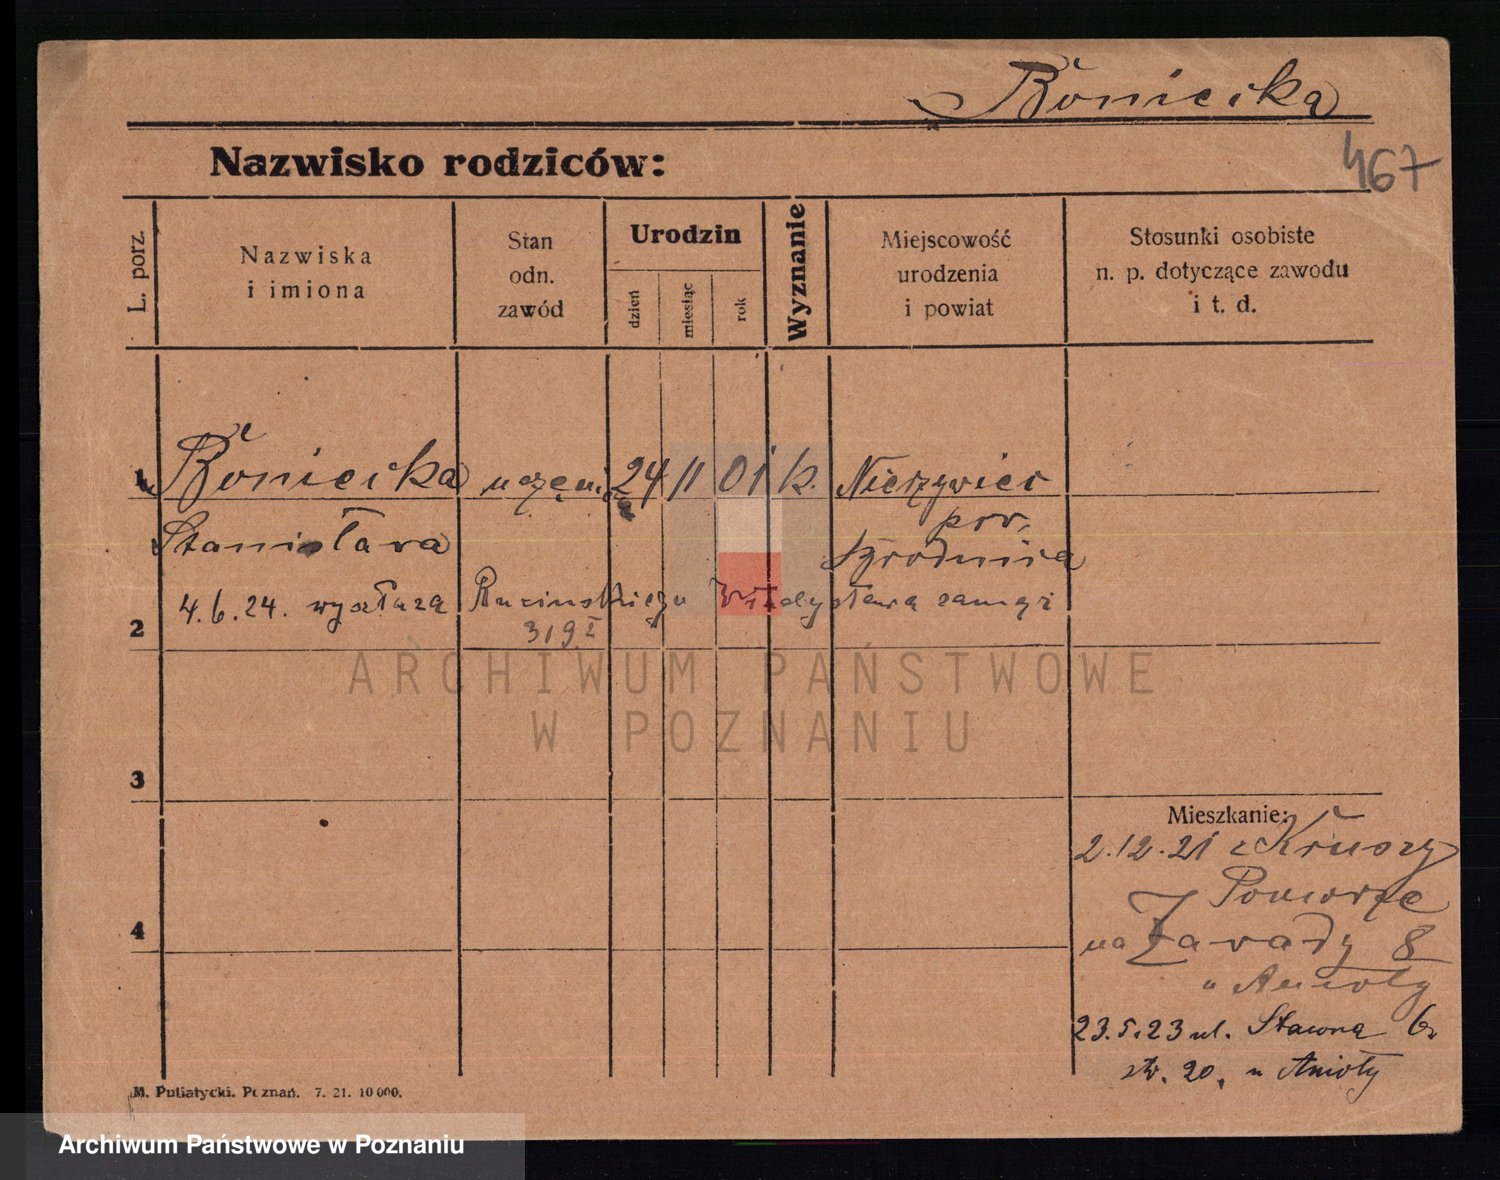 Boniecka
467
Nazwisko rodziców:
L. porz.
Nazwiska i imiona
Stan odn. zawód
Urodzin
dzień
miesiąc
rok
Wyznanie
Miejscowość urodzenia i powiat
Stosunki osobiste n. p. dotyczące zawodu i t. d.
1 Boniecka 24 11 01 k. Nieżywiec
Stanisława pow.
4.6.24. wyszła za Władysława zamąż
319 I
2
3
4
Mieszkanie:
2.12.21 z Kruszy
Pomorze
na Zawady 8
u Anioły
23.5.23 ul. Stawna 6
str. 20. u Anioły
M. Putiatycki. Poznań. 7. 21. 10 000.
ARCHIWUM PAŃSTWOWE
W POZNANIU
Archiwum Państwowe w Poznaniu